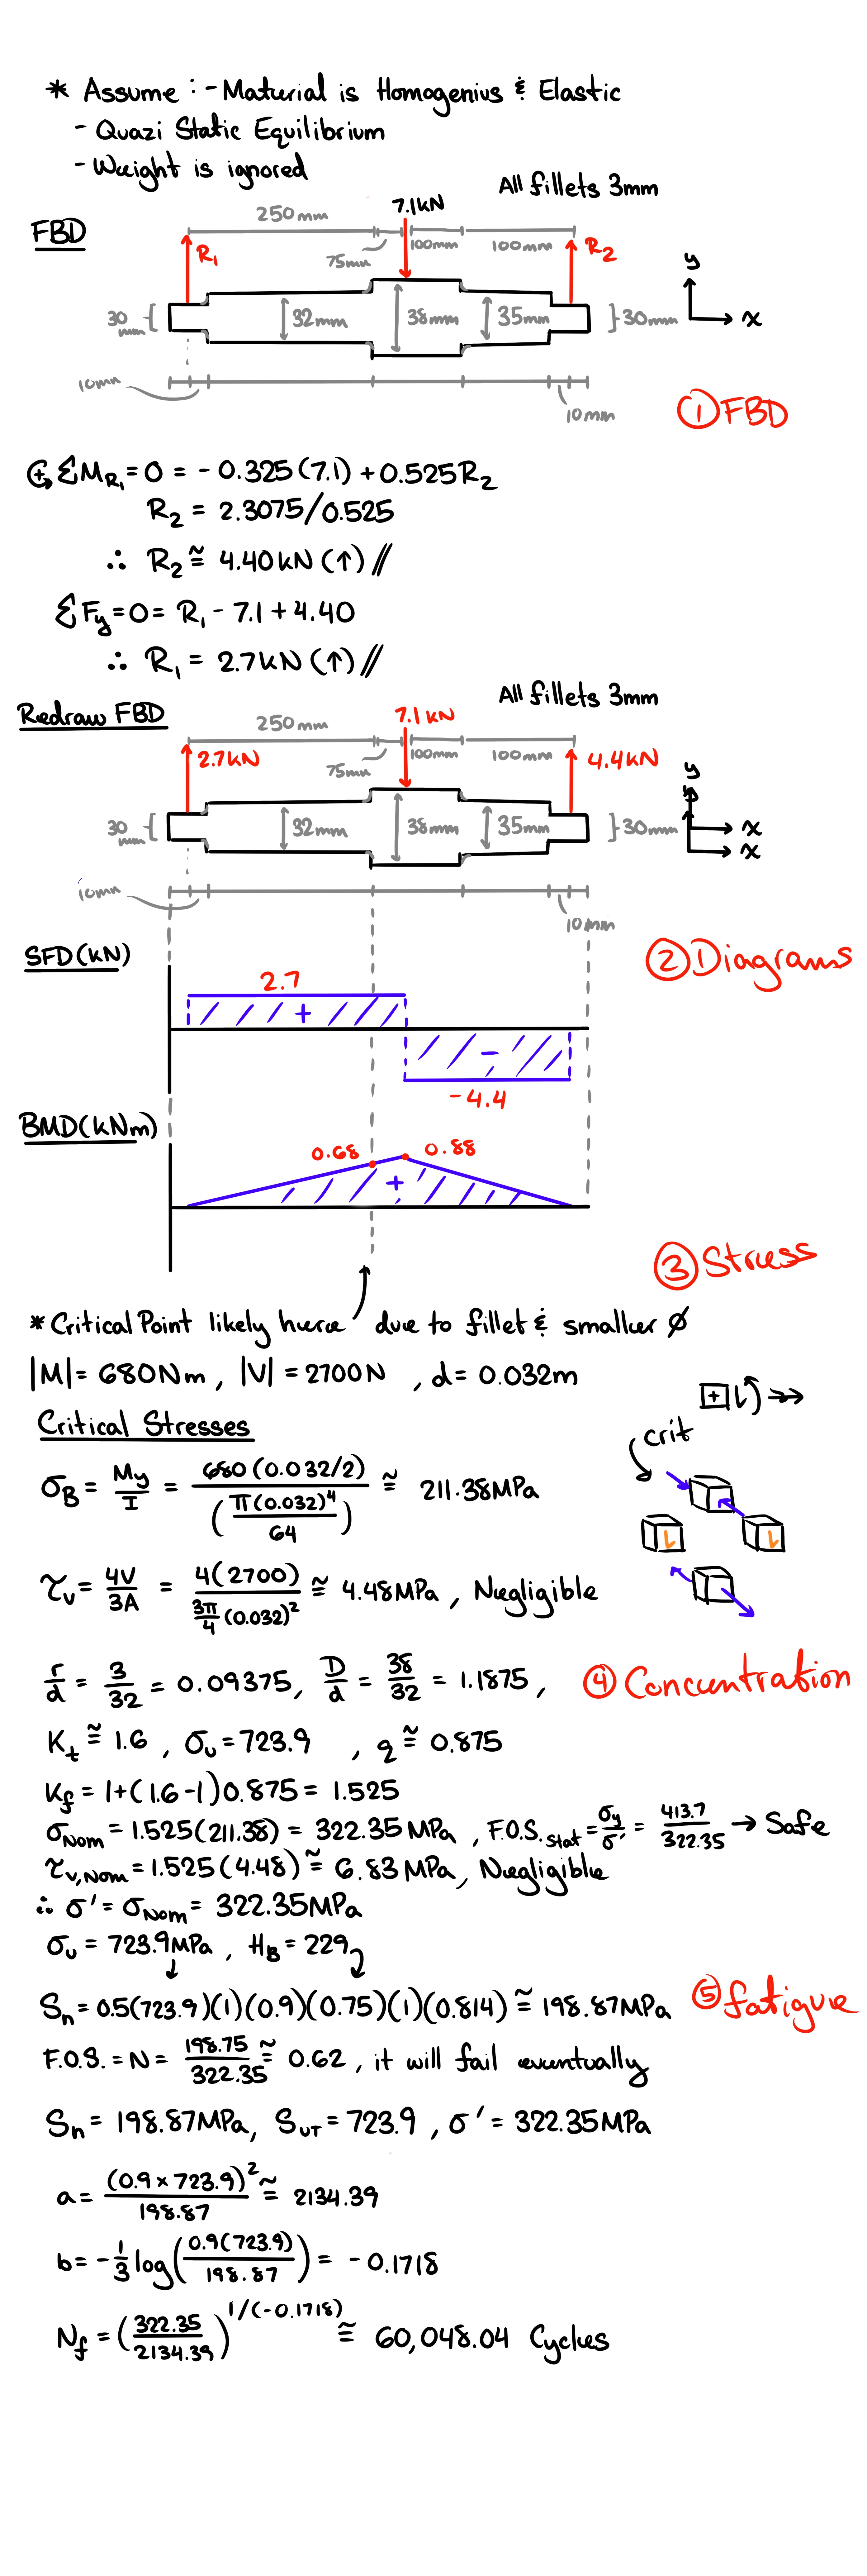 * Assume : - Material is Homogenius & Elastic
- Quazi Static Equilibrium
- Weight is ignored
All fillets 3mm
FBD
250mm
7.1kN
R₁
75mm
100mm
100mm
R₂
y
30mm
32mm
38mm
35mm
30mm
x
10mm
10mm
① FBD
↺+ ΣM_R₁ = 0 = -0.325(7.1) + 0.525R₂
R₂ = 2.3075/0.525
∴ R₂ ≅ 4.40kN (↑) //
ΣFy = 0 = R₁ - 7.1 + 4.40
∴ R₁ = 2.7kN (↑) //
All fillets 3mm
Redraw FBD
250mm
7.1kN
2.7kN
75mm
100mm
100mm
4.4kN
y
y
30mm
32mm
38mm
35mm
30mm
x
x
10mm
10mm
SFD(kN)
② Diagrams
2.7
+
-
-4.4
BMD(kNm)
0.68
0.88
+
③ Stress
* Critical Point likely here due to fillet & smaller ∅
|M| = 680Nm, |V| = 2700N, d = 0.032m
Critical Stresses
crit
σ_B = My/I = 680(0.032/2)/(π(0.032)⁴/64) ≅ 211.38MPa
τ_v = 4V/3A = 4(2700)/(3π/4 (0.032)²) ≅ 4.48MPa, Negligible
r/d = 3/32 = 0.09375, D/d = 38/32 = 1.1875,
④ Concentration
K_t ≅ 1.6, σ_u = 723.9, q ≅ 0.875
K_f = 1+(1.6-1)0.875 = 1.525
σ_Nom = 1.525(211.38) = 322.35MPa, F.O.S._Stat = σ_y/σ' = 413.7/322.35 → Safe
τ_v,Nom = 1.525(4.48) ≅ 6.83MPa, Negligible
∴ σ' = σ_Nom = 322.35MPa
σ_u = 723.9MPa, H_B = 229
S_n = 0.5(723.9)(1)(0.9)(0.75)(1)(0.814) ≅ 198.87MPa
⑤ fatigue
F.O.S. = N = 198.75/322.35 ≅ 0.62, it will fail eventually
S_n = 198.87MPa, S_UT = 723.9, σ' = 322.35MPa
a = (0.9 × 723.9)²/198.87 ≅ 2134.39
b = -1/3 log(0.9(723.9)/198.87) = -0.1718
N_f = (322.35/2134.39)^1/(-0.1718) ≅ 60,048.04 Cycles